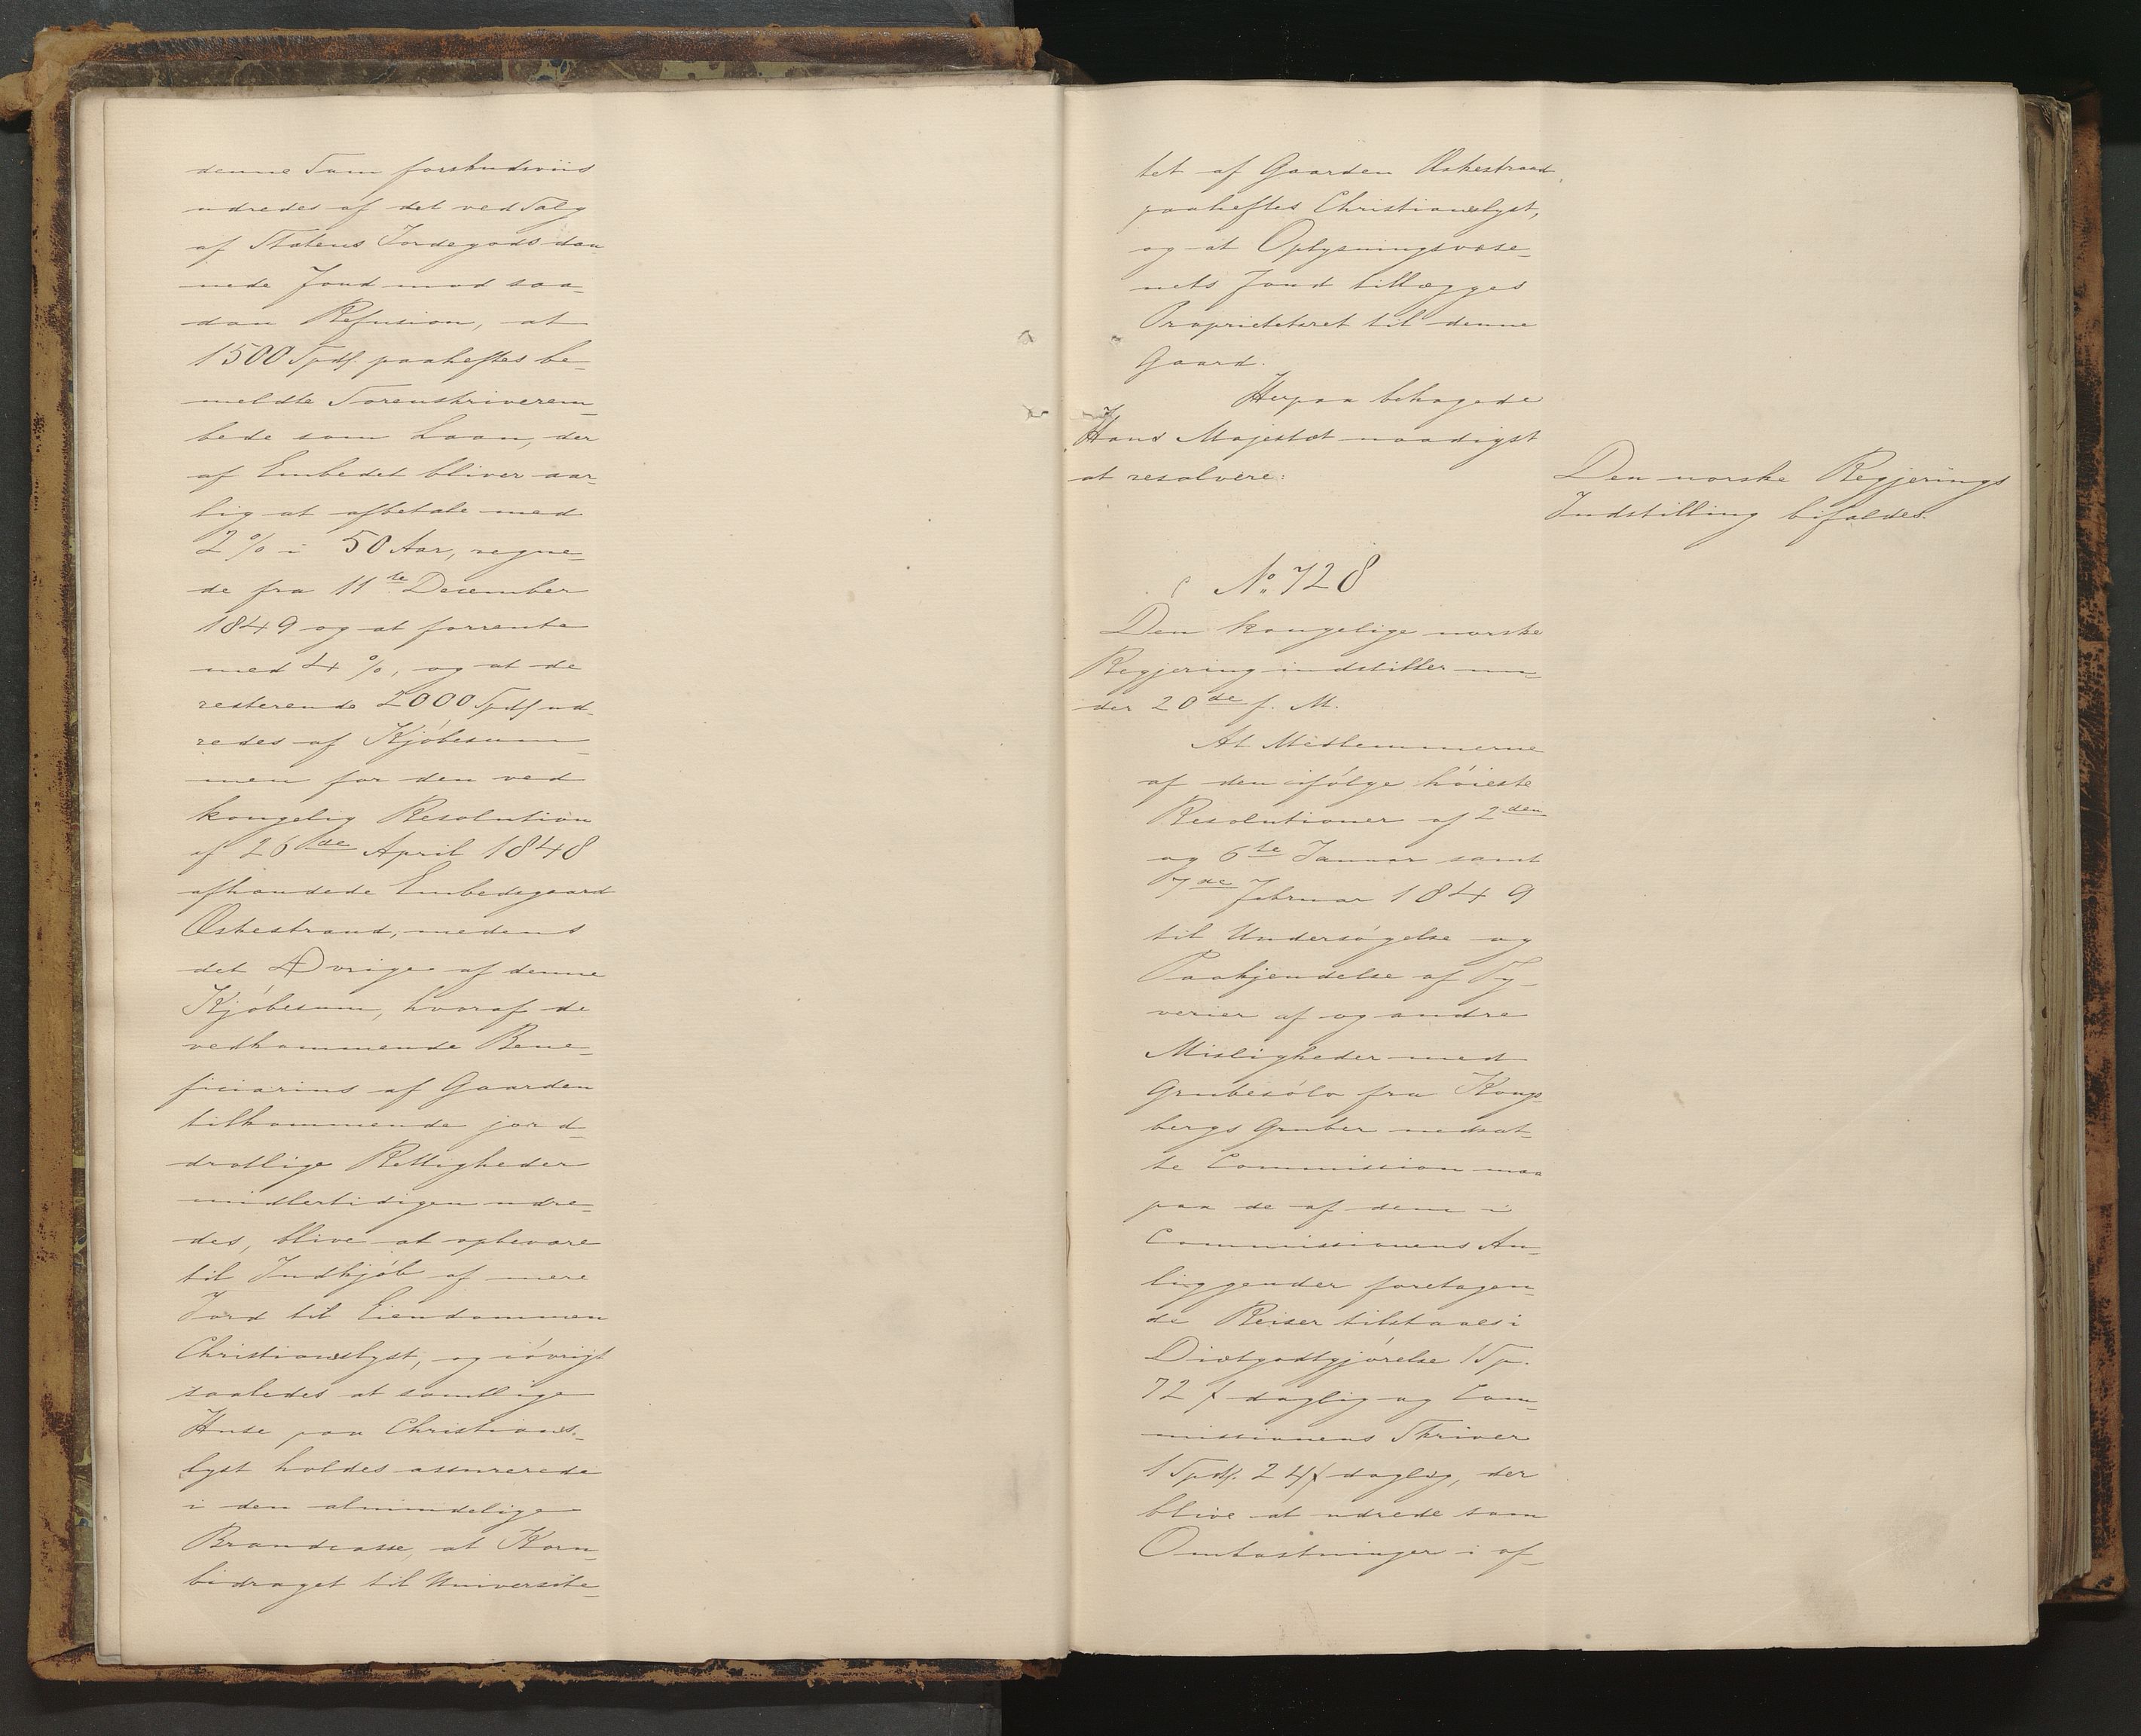 denne Sum forskudsviis
udredes af det ved Salg
af Statens Jordegods dan-
nede Fond mod saa-
dan Refusion, at
1500 Spdlr. paaheftes be-
meldte Sorenskriverem-
bede som Laan, der
af Embedet bliver aar-
lig at afbetale med
2 % i 50 Aar, regne-
de fra 11te December
1849 og at forrente
med 4 %, og at de
resterende 2000 Spdlr ud-
redes af Kjöbesum-
men for den ved
kongelig Resolution
af 26de April 1848
afhændede Embedsgaard
Œskestrand, medens
det Øvrige af denne
Kjöbesum, hvoraf de
vedkommende Bene-
ficiarius af Gaarden
tilkommende jord-
drotlige Rettigheder
midlertidigen udre-
des, blive at opbevare
til Indkjöb af mere
Jord til Eiendommen
Christianslyst, og iövrigt
saaledes at samtlige
Huse paa Christians-
lyst holdes assurerede
i den almindelige
Brandcasse, at Korn-
bidraget til Universite-
tet af Gaarden Œskestrand
paaheftes Christianslyst,
og at Oplysningsvæse-
nets Fond tillægges
Proprietetsret til denne
Gaard.
Herpaa behagede
Hans Majestæt naadigst
at resolvere:
Den norske Regjerings
Indstilling bifaldes.
No. 728
Den kongelige norske
Regjering indstiller un-
der 20de f. M.
At Medlemmerne
af den ifölge höieste
Resolutioner af 2den
og 6te Januar samt
7de Februar 1849
til Undersögelse og
Paakjendelse af Ty-
verier af og andre
Misligheder med
Grubesölv fra Kongs-
bergs Gruber nedsat-
te Commission maa
paa de af dem i
Commissionens An-
liggender foretagen-
de Reiser tilstaaes i
Diætgodtgjörelse 1 Sp.
72 f daglig og Com-
missionens Skriver
1 Spdlr. 24 f daglig, der
blive at udrede som
Omkostninger i af-